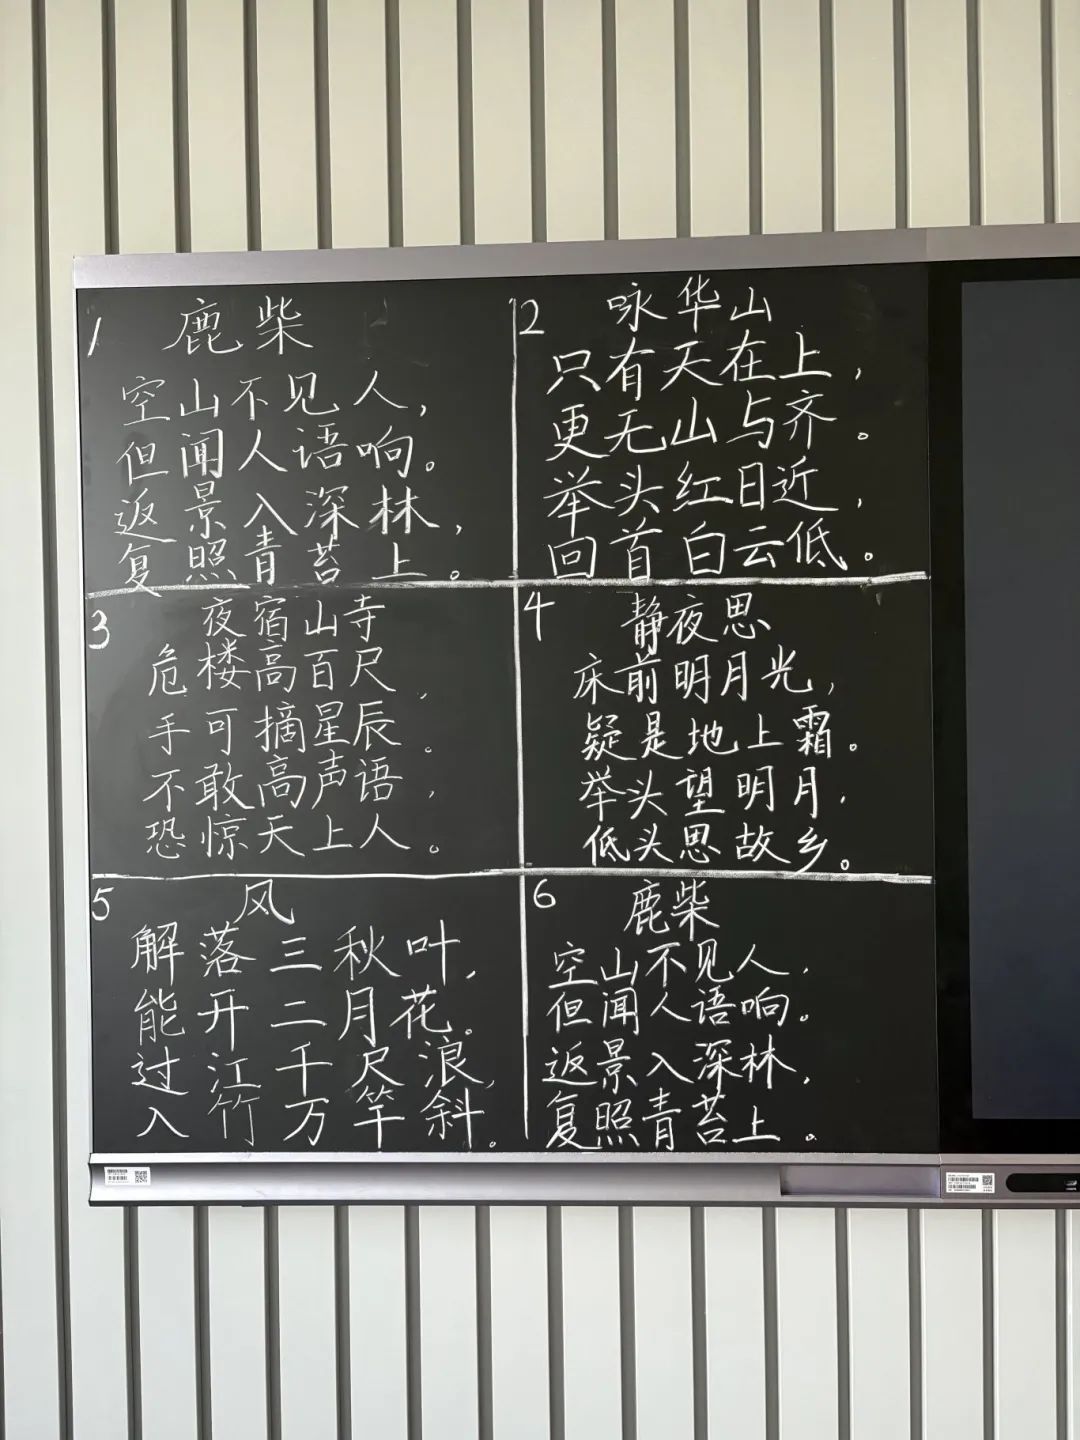 1 鹿柴
空山不见人，
但闻人语响。
返景入深林，
复照青苔上。
2 咏华山
只有天在上，
更无山与齐。
举头红日近，
回首白云低。
3 夜宿山寺
危楼高百尺，
手可摘星辰。
不敢高声语，
恐惊天上人。
4 静夜思
床前明月光，
疑是地上霜。
举头望明月，
低头思故乡。
5 风
解落三秋叶，
能开二月花。
过江千尺浪，
入竹万竿斜。
6 鹿柴
空山不见人，
但闻人语响。
返景入深林，
复照青苔上。